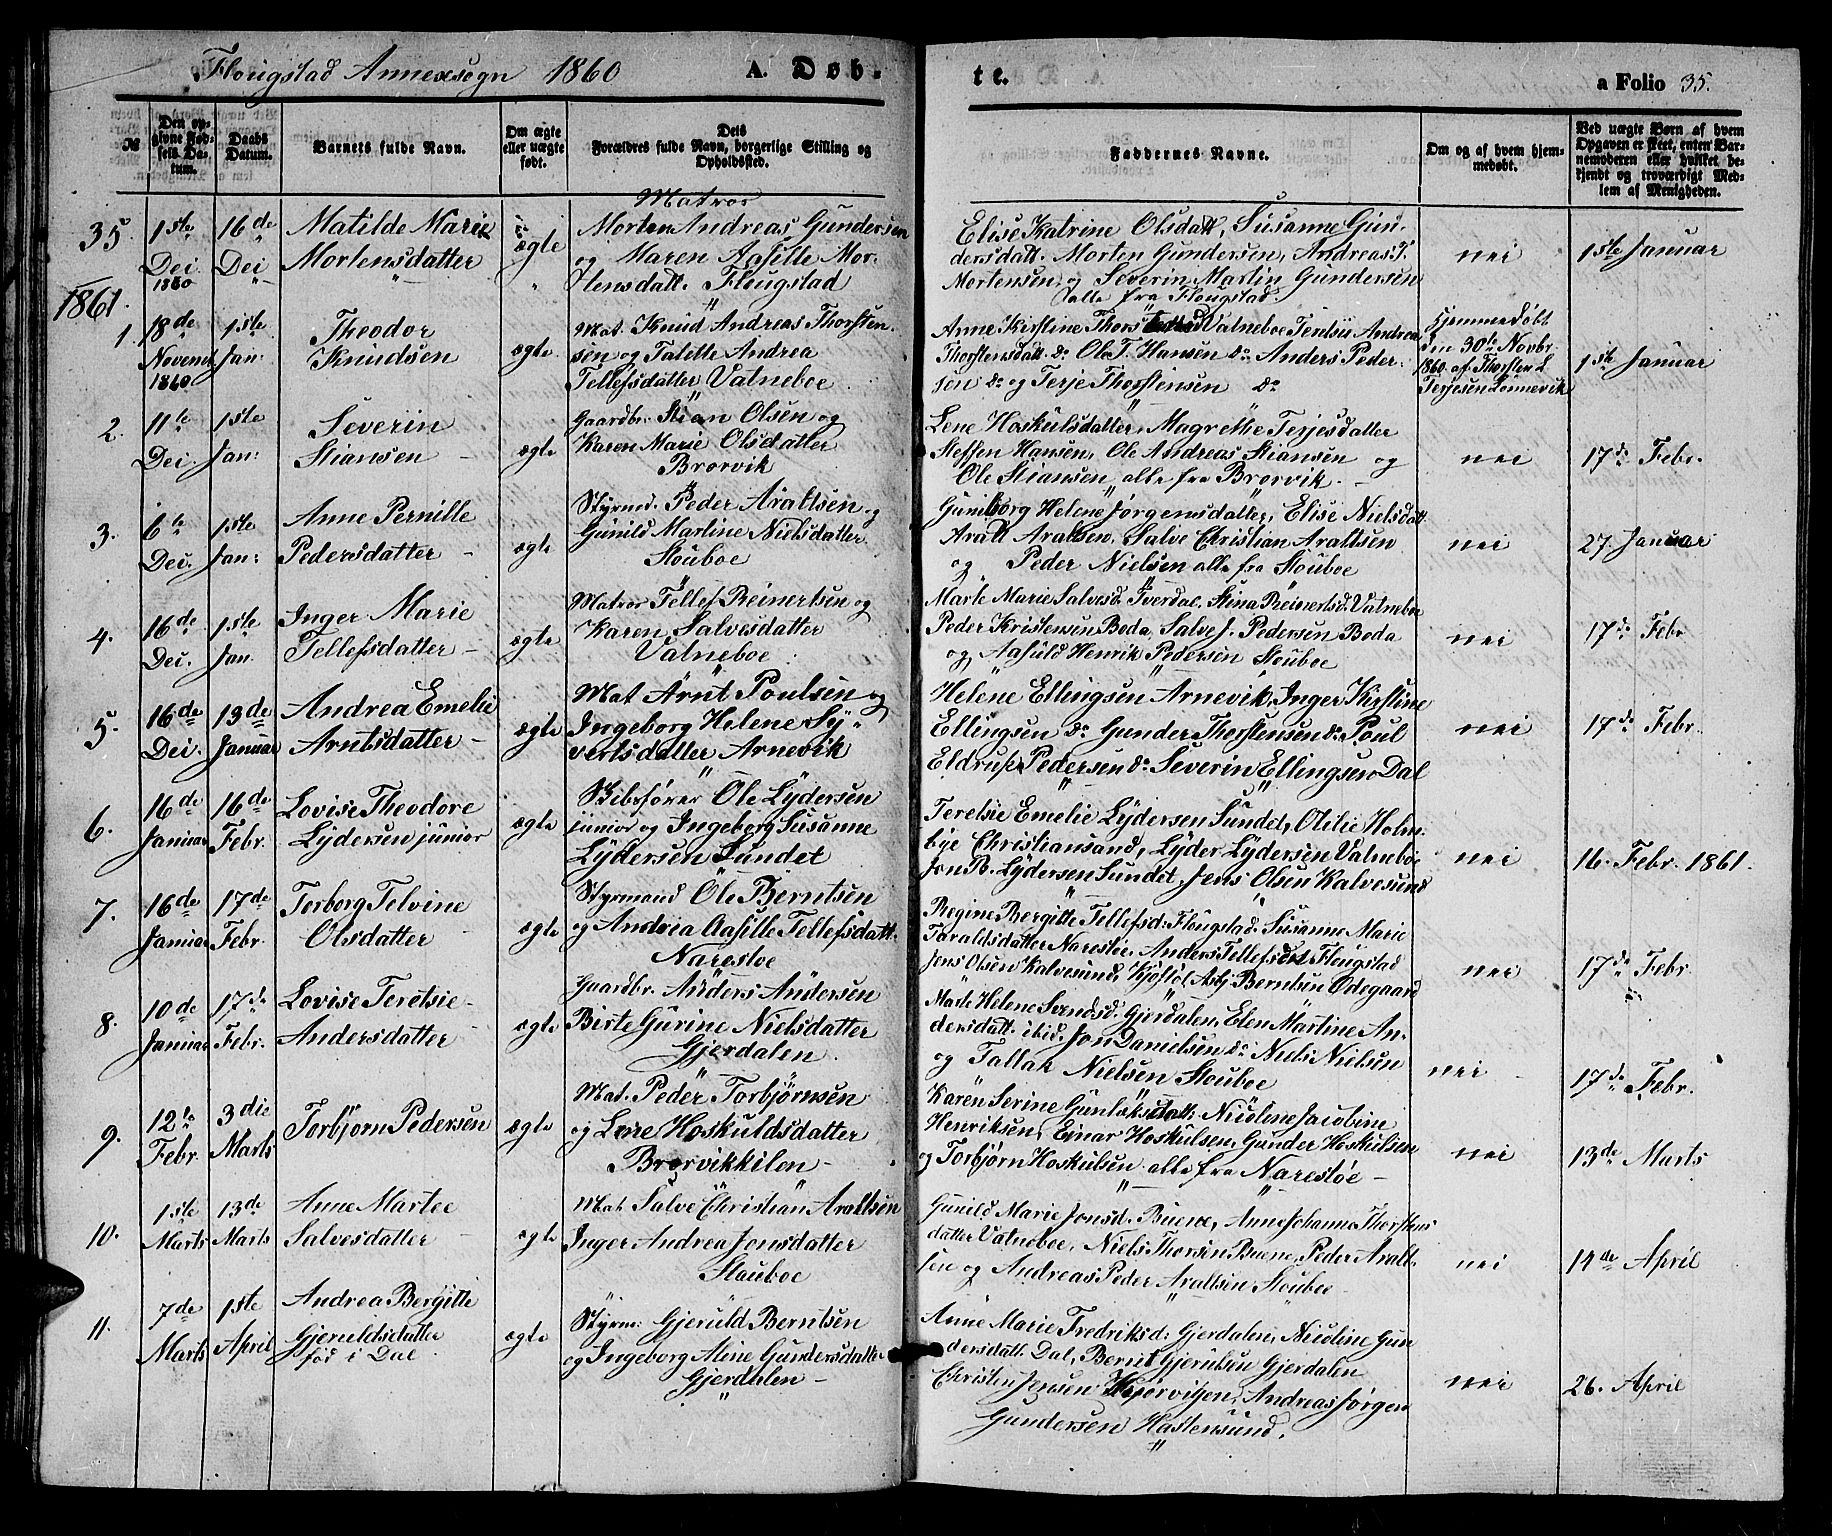 Flougstad Annexsogn 1860 A. Døb-
te.
a Folio 35.
№
Den opgivne Fødsels Datum.
Daabs Datum.
Barnets fulde Navn.
Om ægte eller uægte født.
Dets Forældres fulde Navn, borgerlige Stilling og Opholdssted.
Faddernes Navne.
Om og af hvem hjemmedøbt.
Ved uægte Børn af hvem Opgaven er skeet, enten Barnemoderen eller hvilket bekjendt og troværdigt Medlem af Menigheden.
35.
1ste
Dei
1860
16de
Dei
Matilde Marie
Mortensdatter
ægte
Matros
Morten Andreas Gundersen
og Maren Aasille Mor-
tensdatt. Flougstad
Elise Katrine Olsdatt, Susanne Gun-
dersdatt. Morten Gundersen, Andreas
Mortensen og Severin Martin Gundersen
alle fra Flougstad
nei
1ste Januar
1861.
1.
18de
Novemb
1860
1ste
Jan:
Theodor
Knudsen
ægte
Mat. Knud Andreas Thorsten-
sen og Talette Andrea
Tellefsdatter Vatneboe
Anne Kirstine Vatneboe Terelsie Andrea
Thorstensdatt. do Ole T. Hansen do Anders Peder-
sen do og Terje Thorstensen do
Hjemmedøbt
den 30te Novbr.
1860 af Thorsten
Terjesen Lønnevik
1ste Januar
2.
11te
Dei.
1ste
Jan:
Severin
Stiansen
ægte
Gaardbr. Stian Olsen og
Karen Marie Olsdatter
Brorvik
Lene Hoskulsdatter, Magrethe Terjesdatter
Steffen Hansen, Ole Andreas Stiansen og
Ole Stiansen, alle fra Brorvik.
nei
17de Febr.
3.
6te
Dei.
1ste
Jan:
Anne Pernille
Pedersdatter
ægte
Styrmd. Peder Araltsen og
Gunild Martine Nielsdatter
Stouboe
Guniborg Helene Jørgensdatter, Elise Nielsdatt.
Aralt Araltsen, Salve Christian Araltsen
og Peder Nielsen alle fra Stouboe
nei
27. Januar
4.
16de
Dei.
1ste
Jan.
Inger Marie
Tellefsdatter
ægte
Matros Tellef Reinertsen og
Karen Salvesdatter
Vatneboe
Marte Marie Salvesd. Tverdal, Stina Reinertsd. Vatneboe
Peder Kristensen Boda, Salve J. Pedersen Boda
og Aasuld Henrik Pedersen Stouboe
nei
17de Febr
5.
16de
Dei.
13de
Januar
Andrea Emelie
Arntsdatter
ægte
Mat Arnt Poulsen og
Ingeborg Helene Sy-
vertsdatter Arnevik
Helene Ellingsen Arnevik, Inger Kirstine
Ellingsen do Gunder Thorstensen do Poul
Eldrup Pedersen do Severin Ellingsen Dal
nei
17de Febr.
6.
16de
Januar
16de
Febr.
Lovise Theodore
Lydersen junior
ægte
Skibsfører Ole Lydersen
junior og Ingeborg Susanne
Lydersen Sundet
Terelsie Emelie Lydersen Sundet, Otilie Holm-
bye Christiansand, Lyder Lydersen Vatneboe
Jon B. Lydersen Sundet, Jens Olsen Kalvesund
nei
16. Febr. 1861.
7.
16de
Januar
17de
Febr.
Torborg Telvine
Olsdatter
ægte
Styrmand Ole Berntsen
og Andrea Aasille Tellefsdatt.
Narestøe
Regine Bergitte Tellefsd. Flougstad. Susanne Marie
Taraldsdatter Narestøe, Anders Tellefsen Flougstad
Jens Olsen Kalvesund, Berntsen Ødegaard
nei
17de Febr
8.
10de
Januar
17de
Febr.
Lovise Teretsie
Andersdatter
ægte
Gaardbr. Anders Andersen
Birte Gurine Nielsdatter
Gjerdalen
Marte Helene Svendsd. Gjerdalen, Elen Martine An-
dersdatt. ibid. Jon Danielsen do Niels Nielsen
og Tallak Nielsen Stouboe
nei
17de Febr.
9.
12te
Febr.
3die
Marts
Torbjørn Pedersen
ægte
Mat. Peder Torbjørnsen
og Lene Hoskuldsdatter
Brorvikkilen
Karen Serine Nicolene Jacobine
Henriksen, Einar Hoskulsen, Gunder Hoskulsen
og Torbjørn Hoskulsen alle fra Narestøe
nei
13de Marts
10.
1ste
Marts
13de
Marts
Anne Martee
Salvesdatter
ægte
Mat Salve Christian Araltsen
Inger Andrea Jonsdatter
Stouboe
Gunild Marie Jonsd. Buene, Anne Johanne Thorstens
datter Vatneboe, Niels Thorsen Buene, Peder Aralt-
sen og Andreas Peder Araltsen Stouboe
nei
14de April
11.
7de
Marts
1ste
April
Andrea Bergitte
Gjeruldsdatter
fød i Dal
ægte
Styrm. Gjeruld Berntsen
og Ingeborg Aline Gundersdatter
Gjerdalen
Anne Marie Fredriksd. Gjerdalen, Nicoline Gun
dersdatt. Dal, Bernt Gjerulsen Gjerdalen
Christen Jensen Andreas Jørgen
Gundersen Hastensund.
nei
26. April